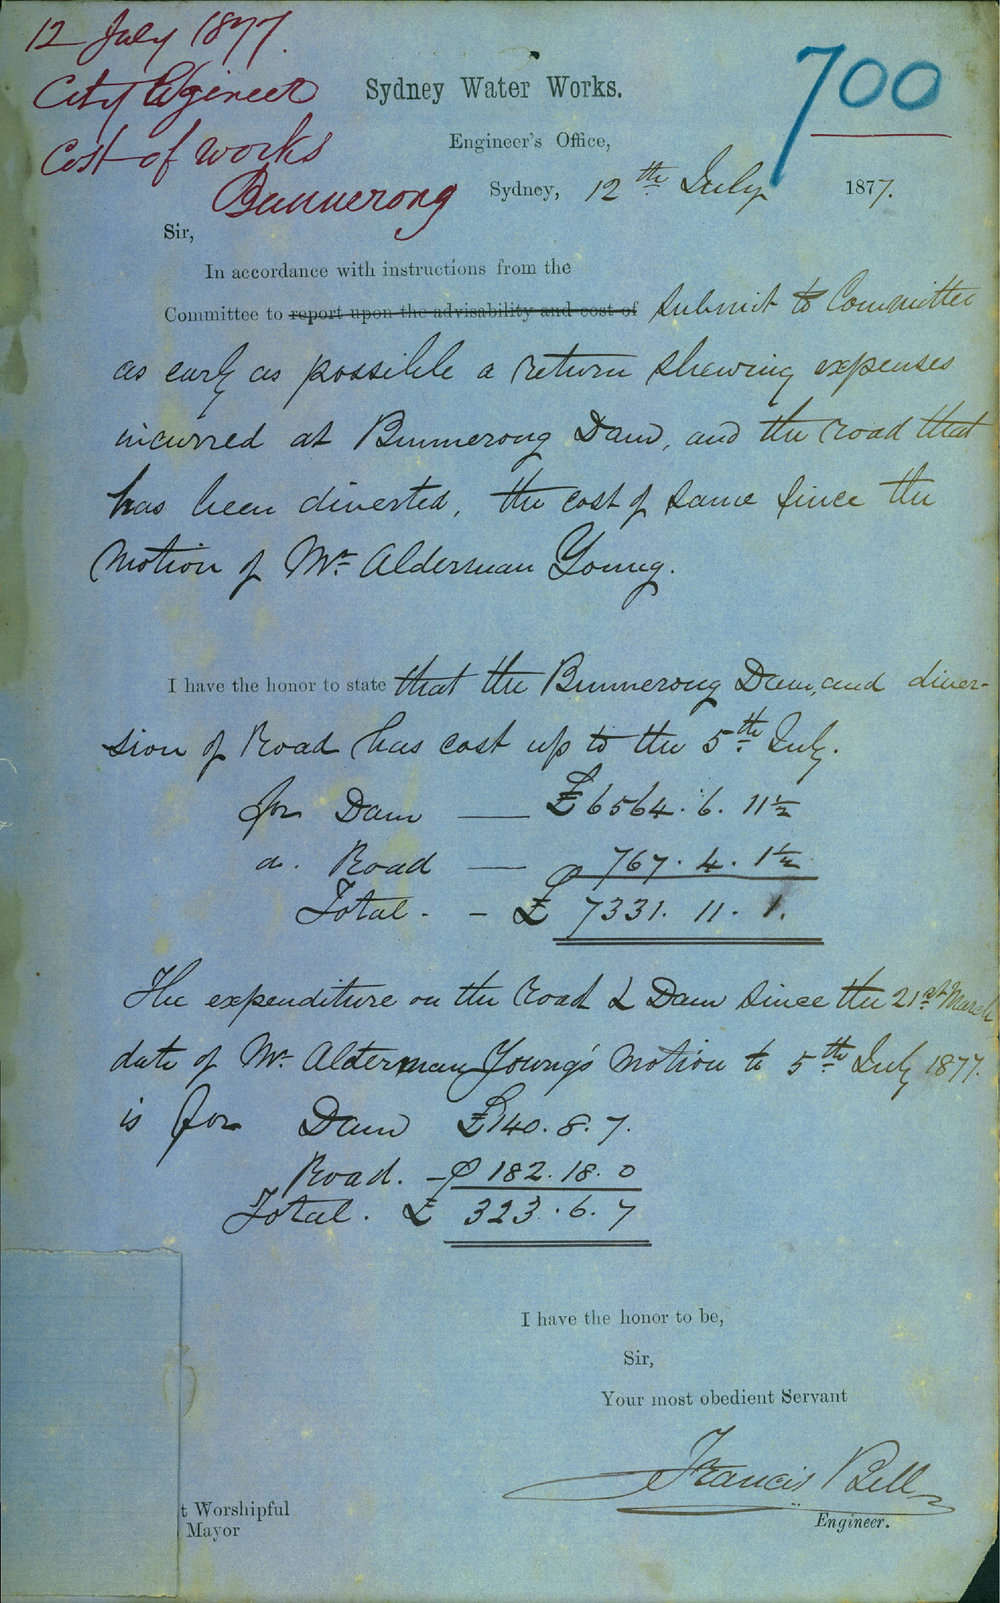 12 July 1877.
City Engineer
Cost of works
Bunnerong
700
Sydney Water Works.
Engineer's Office,
Sydney, 12th July 1877.
Sir,
In accordance with instructions from the
Committee to report upon the advisability and cost of submit to Committee
as early as possible a return shewing expenses
incurred at Bunnerong Dam, and the road that
has been diverted, the cost of same since the
Motion of Mr Alderman Young.
I have the honor to state that the Bunnerong Dam, and diver-
sion of Road has cost up to the 5th July.
for Dam — £6564.6.11½
do. Road — 767.4.1½
Total. - £ 7331.11.1.
The expenditure on the road & Dam since the 21st March
date of Mr Alderman Young's Motion to 5th July 1877.
is for Dam £140.8.7.
Road. - 182.18.0
Total. £ 323.6.7
I have the honor to be,
Sir,
Your most obedient Servant
Francis Bell
Engineer.
t Worshipful
Mayor